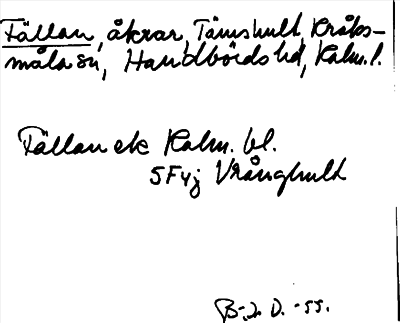 Fällan, åkrar, Tämshult, Kråks-
måla sn, Handbörds hd, Kalm. l.
Fällan ek Kalm. bl.
5F4j Vrånghult
B-J. D. -55.